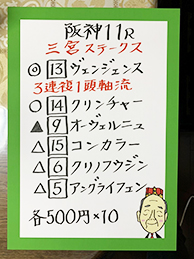 阪神11R
三宮ステークス
◎13ヴェンジェンス
3連複1頭軸流
○14クリンチャー
▲9オーヴェルニュ
△15コンカラー
△6クリノフウジン
△5アングライフェン
各500円×10